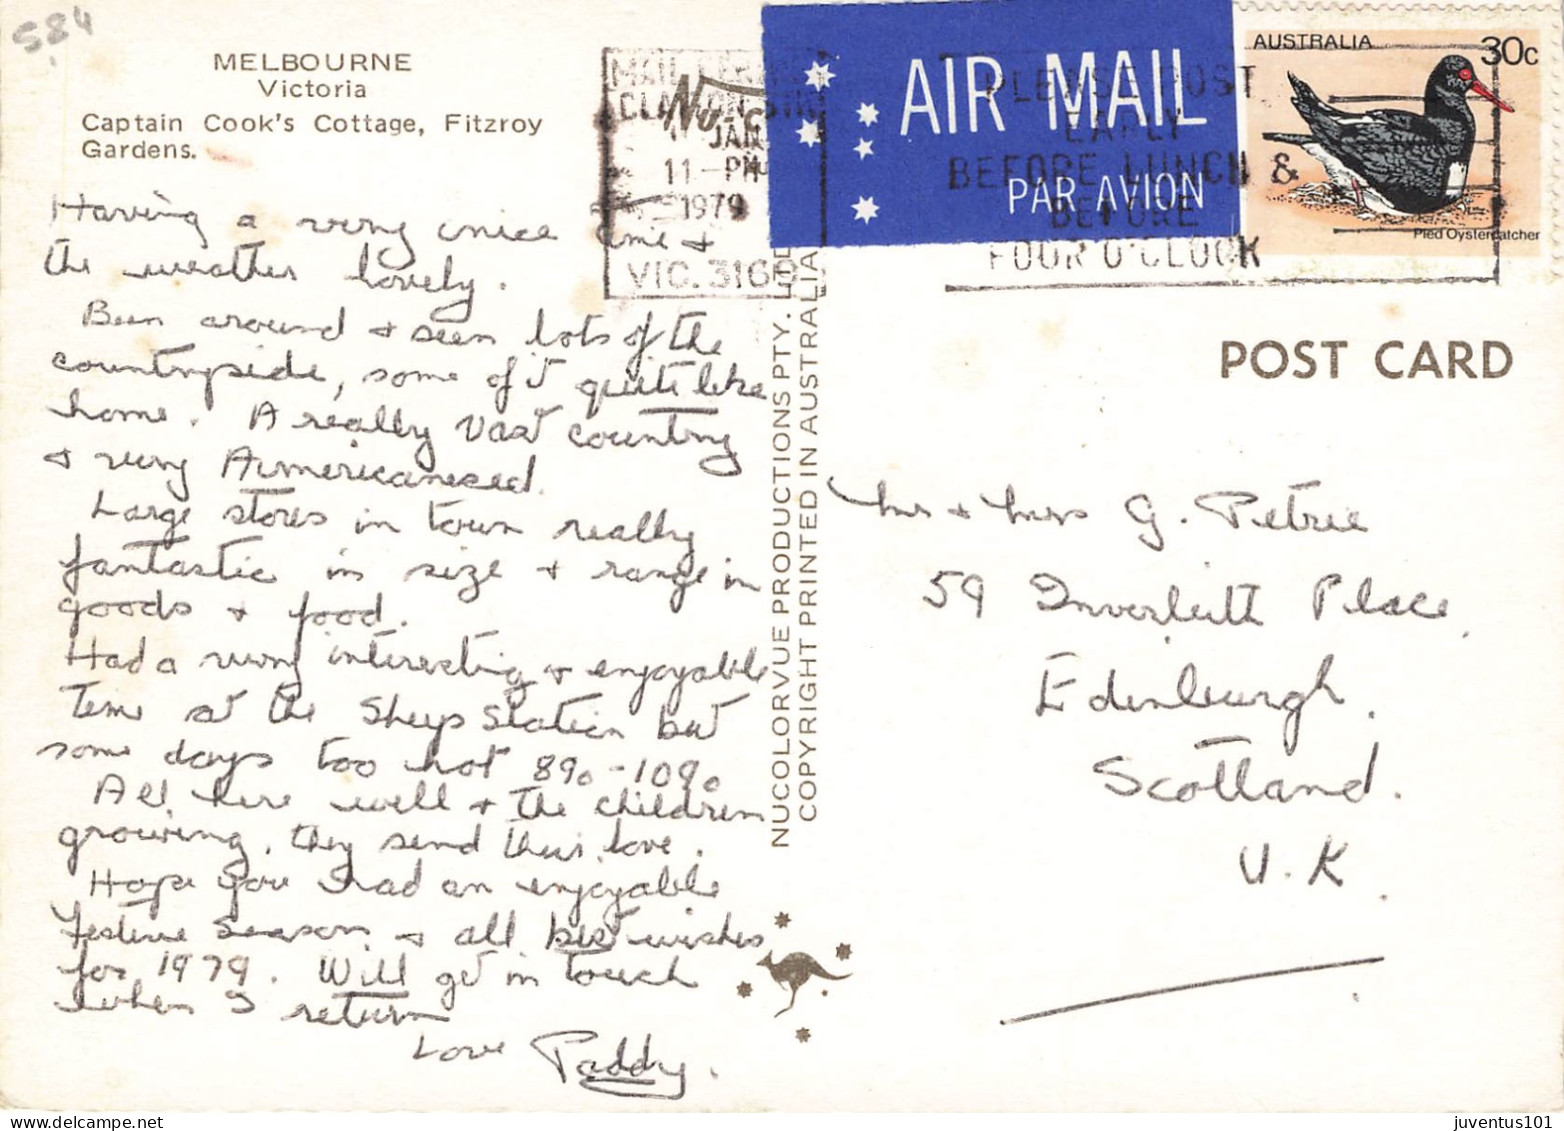 584
MELBOURNE
Victoria
Captain Cook's Cottage, Fitzroy
Gardens.
Having a very nice time &
the weather lovely.
Been around & seen lots of the
countryside, some of it quite like
home. A really vast country
& very Americanised.
Large stores in town really
fantastic in size & range in
goods & food.
Had a very interesting & enjoyable
time at the Sheep Station but
some days too hot 89° - 109°
All here well & the children
growing, they send their love.
Hope you had an enjoyable
festive season & all best wishes
for 1979. Will get in touch
when I return
Love Paddy.
JAN
11-PM
1979
VIC. 3168
AIR MAIL
PAR AVION
PLEASE POST
EARLY
BEFORE LUNCH &
BEFORE
FOUR O'CLOCK
AUSTRALIA 30c
Pied Oystercatcher
NUCOLORVUE PRODUCTIONS PTY. LTD
COPYRIGHT PRINTED IN AUSTRALIA
POST CARD
Mr & Mrs G. Petrie
59 Inverleith Place,
Edinburgh.
Scotland.
U.K.
juventus101